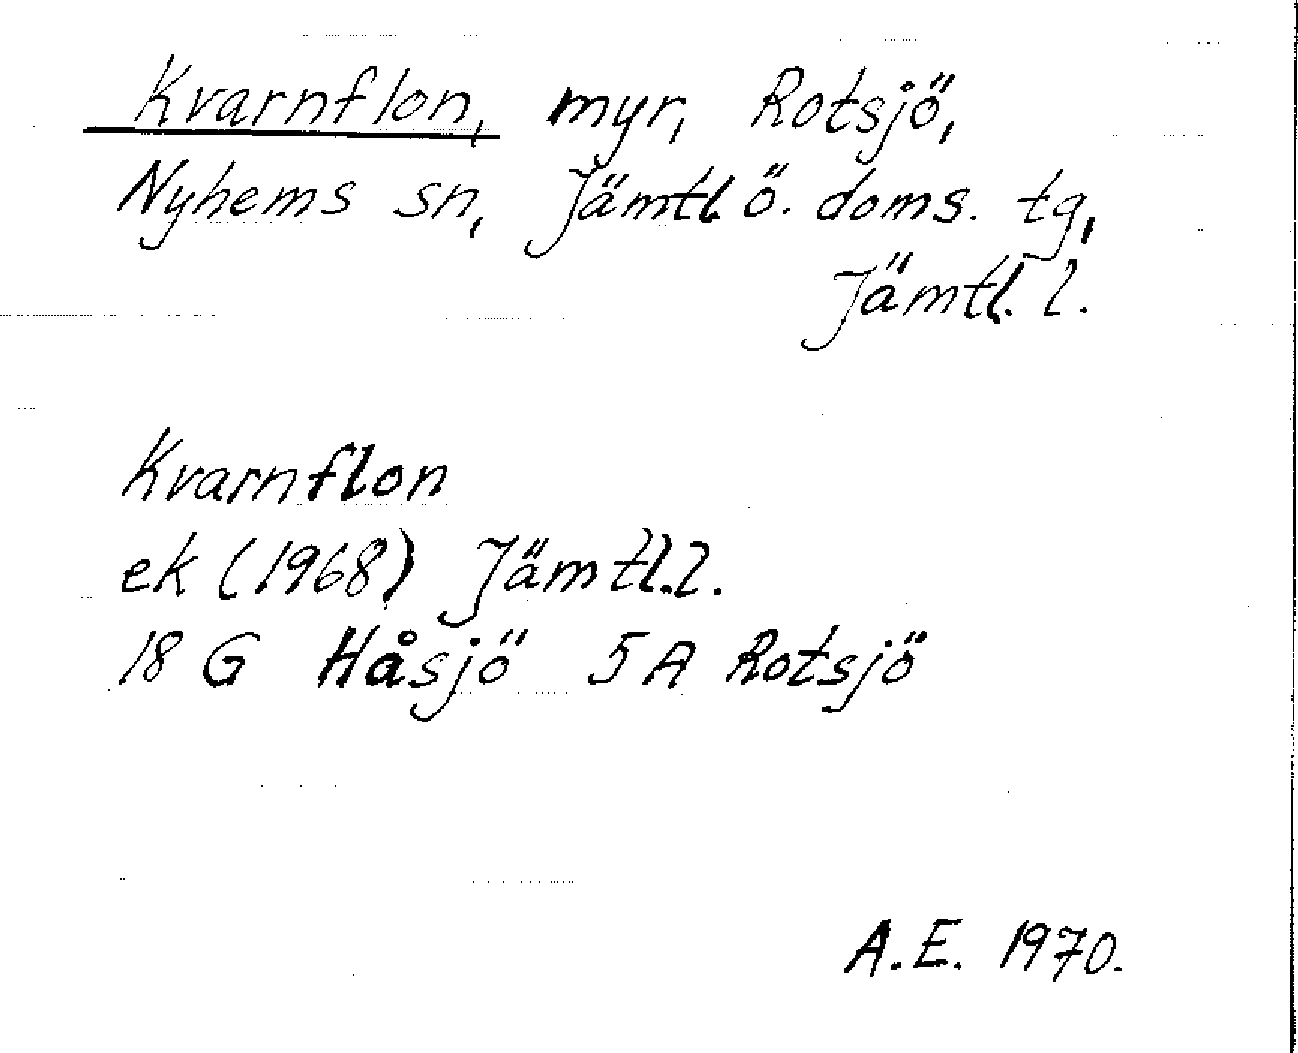 Kvarnflon, myr, Rotsjö,
Nyhems sn, Jämtl. ö. doms. tg,
Jämtl. l.
Kvarnflon
ek (1968) Jämtl. l.
18 G Håsjö 5 A Rotsjö
A.E. 1970.